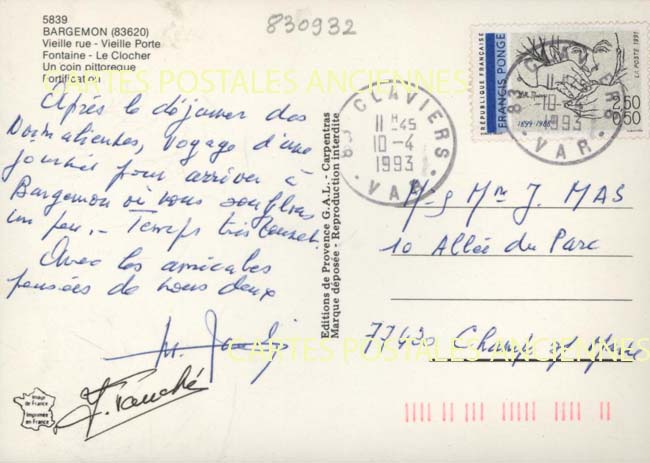 5839
BARGEMON (83620)
Vieille rue - Vieille Porte
Fontaine - Le Clocher
Un coin pittoresque
Fortification
830932
CARTES POSTALES ANCIENNES
Après le déjeuner des
voyage d'une
journée pour arriver à
Bargemon où nous soufflons
un peu. - Temps très
Avec les amicales
pensées de nous deux
F. Fauché
Image
de France
Imprimée
en France
Editions de Provence G.A.L. - Carpentras
Marque déposée - Reproduction interdite
83 CLAVIERS
11 H 45
10-4
1993
VAR
RÉPUBLIQUE FRANÇAISE
FRANCIS PONGE
1899-1988
LA POSTE 1991
2,50
0,50
83
10-
1993
VAR
M. J. MAS
10 Allée du Parc
77430 Champagne
CARTES POSTALES ANCIENNES